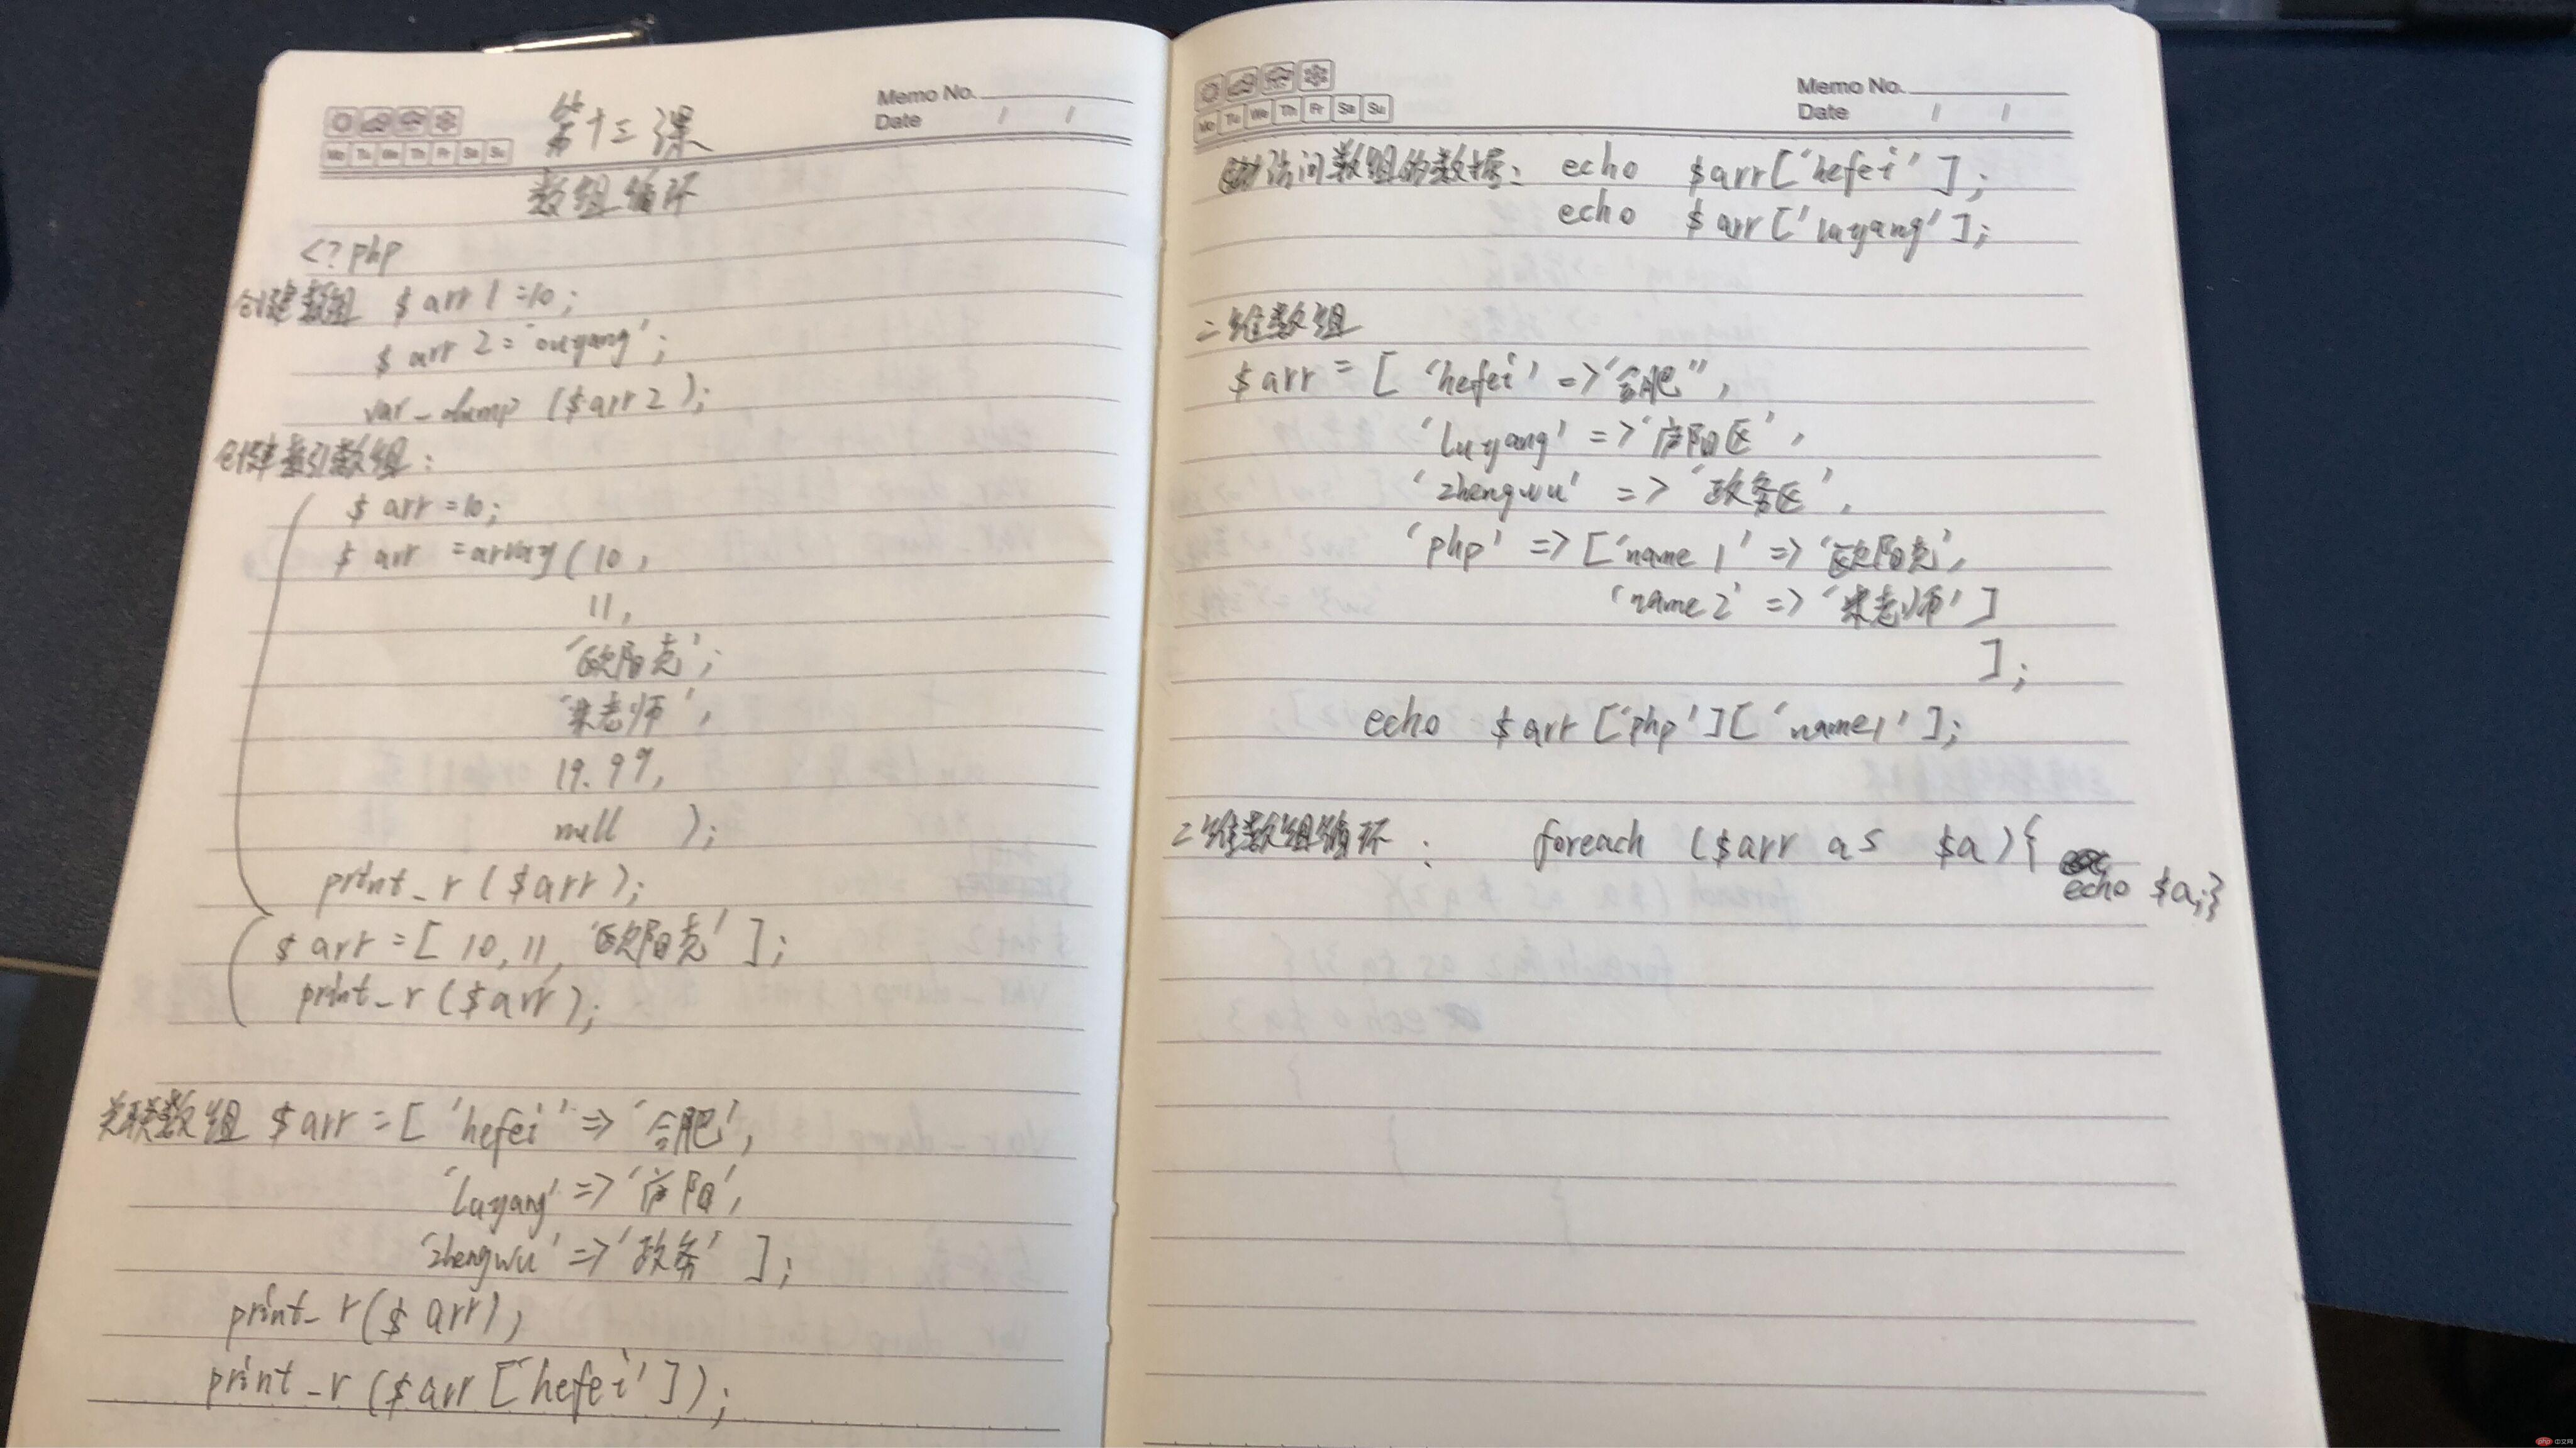 Memo No.
Date / /
Mo Tu We Th Fr Sa Su
第十三课
数组循环
<?php
创建数组 $arr1=10;
$arr2='ouyang';
var_dump($arr2);
创建索引数组:
$arr=10;
$arr =array(10,
11,
'欧阳克';
'朱老师',
19.99,
null );
print_r($arr);
$arr=[10,11,'欧阳克'];
print_r($arr);
关联数组 $arr=['hefei'=>'合肥',
'luyang'=>'庐阳',
'zhengwu'=>'政务'];
print_r($arr);
print_r($arr['hefei']);
Memo No.
Date / /
Mo Tu We Th Fr Sa Su
访问数组的数据: echo $arr['hefei'];
echo $arr['luyang'];
二维数组
$arr=['hefei'=>'合肥",
'luyang'=>'庐阳区',
'zhengwu'=>'政务区',
'php'=>['name1'=>'欧阳克',
'name2'=>'朱老师']
];
echo $arr['php']['name1'];
二维数组循环: foreach ($arr as $a){
echo $a;}
php 中文网